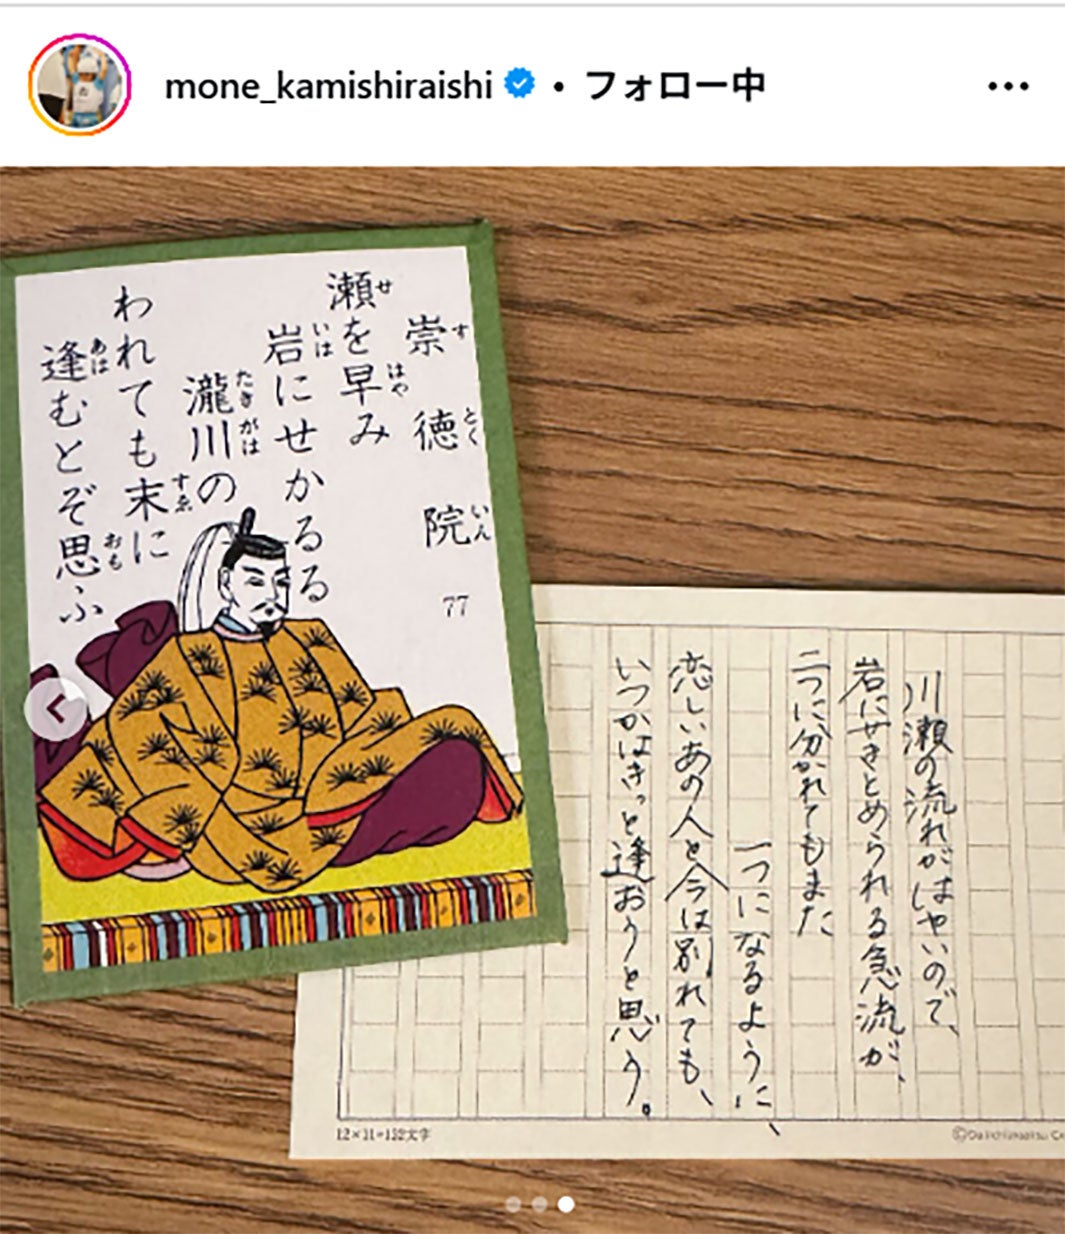 mone_kamishiraishi • フォロー中
崇徳院
すとくいん
77
瀬を早み
せ はや
岩にせかるる
いは
瀧川の
たきがは
われても末に
すゑ
逢むとぞ思ふ
あは おも
川瀬の流れがはやいので、
岩にせきとめられる急流が、
二つに分かれてもまた
一つになるように、
恋しいあの人と今は別れても、
いつかはきっと逢おうと思う。
12×11=132文字